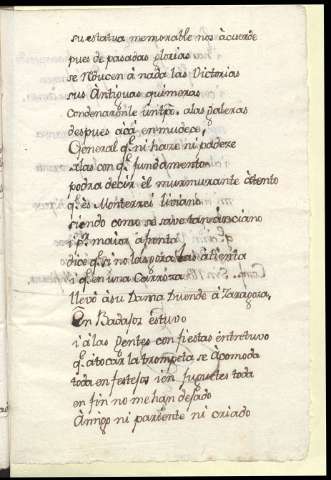 su estatua memorable nos acuerde
pues de pasadas glorias
se Reducen a nada las Victorias
sus Antiguas quimeras
Condenaronle a las galeras
despues acà enmudece,
General q.e ni hace ni padece
mas con q.e fundamento
podrà decir èl murmurante àtento
q.e es Monterrei liviano
siendo como se save tan àncìano
i p.r maior àfrenta
dice q.e si no las àlienta
i q.e en una Carroza
llevò àsu Dama Duende à Zaragoza,
En Badajoz estuvo
i à las gentes con fiestas entretuvo
q.e àtocar la trompeta se àcomoda
toda en festejos i en juguetes toda
en fin no me han dejado
Amigo ni pariente ni criado